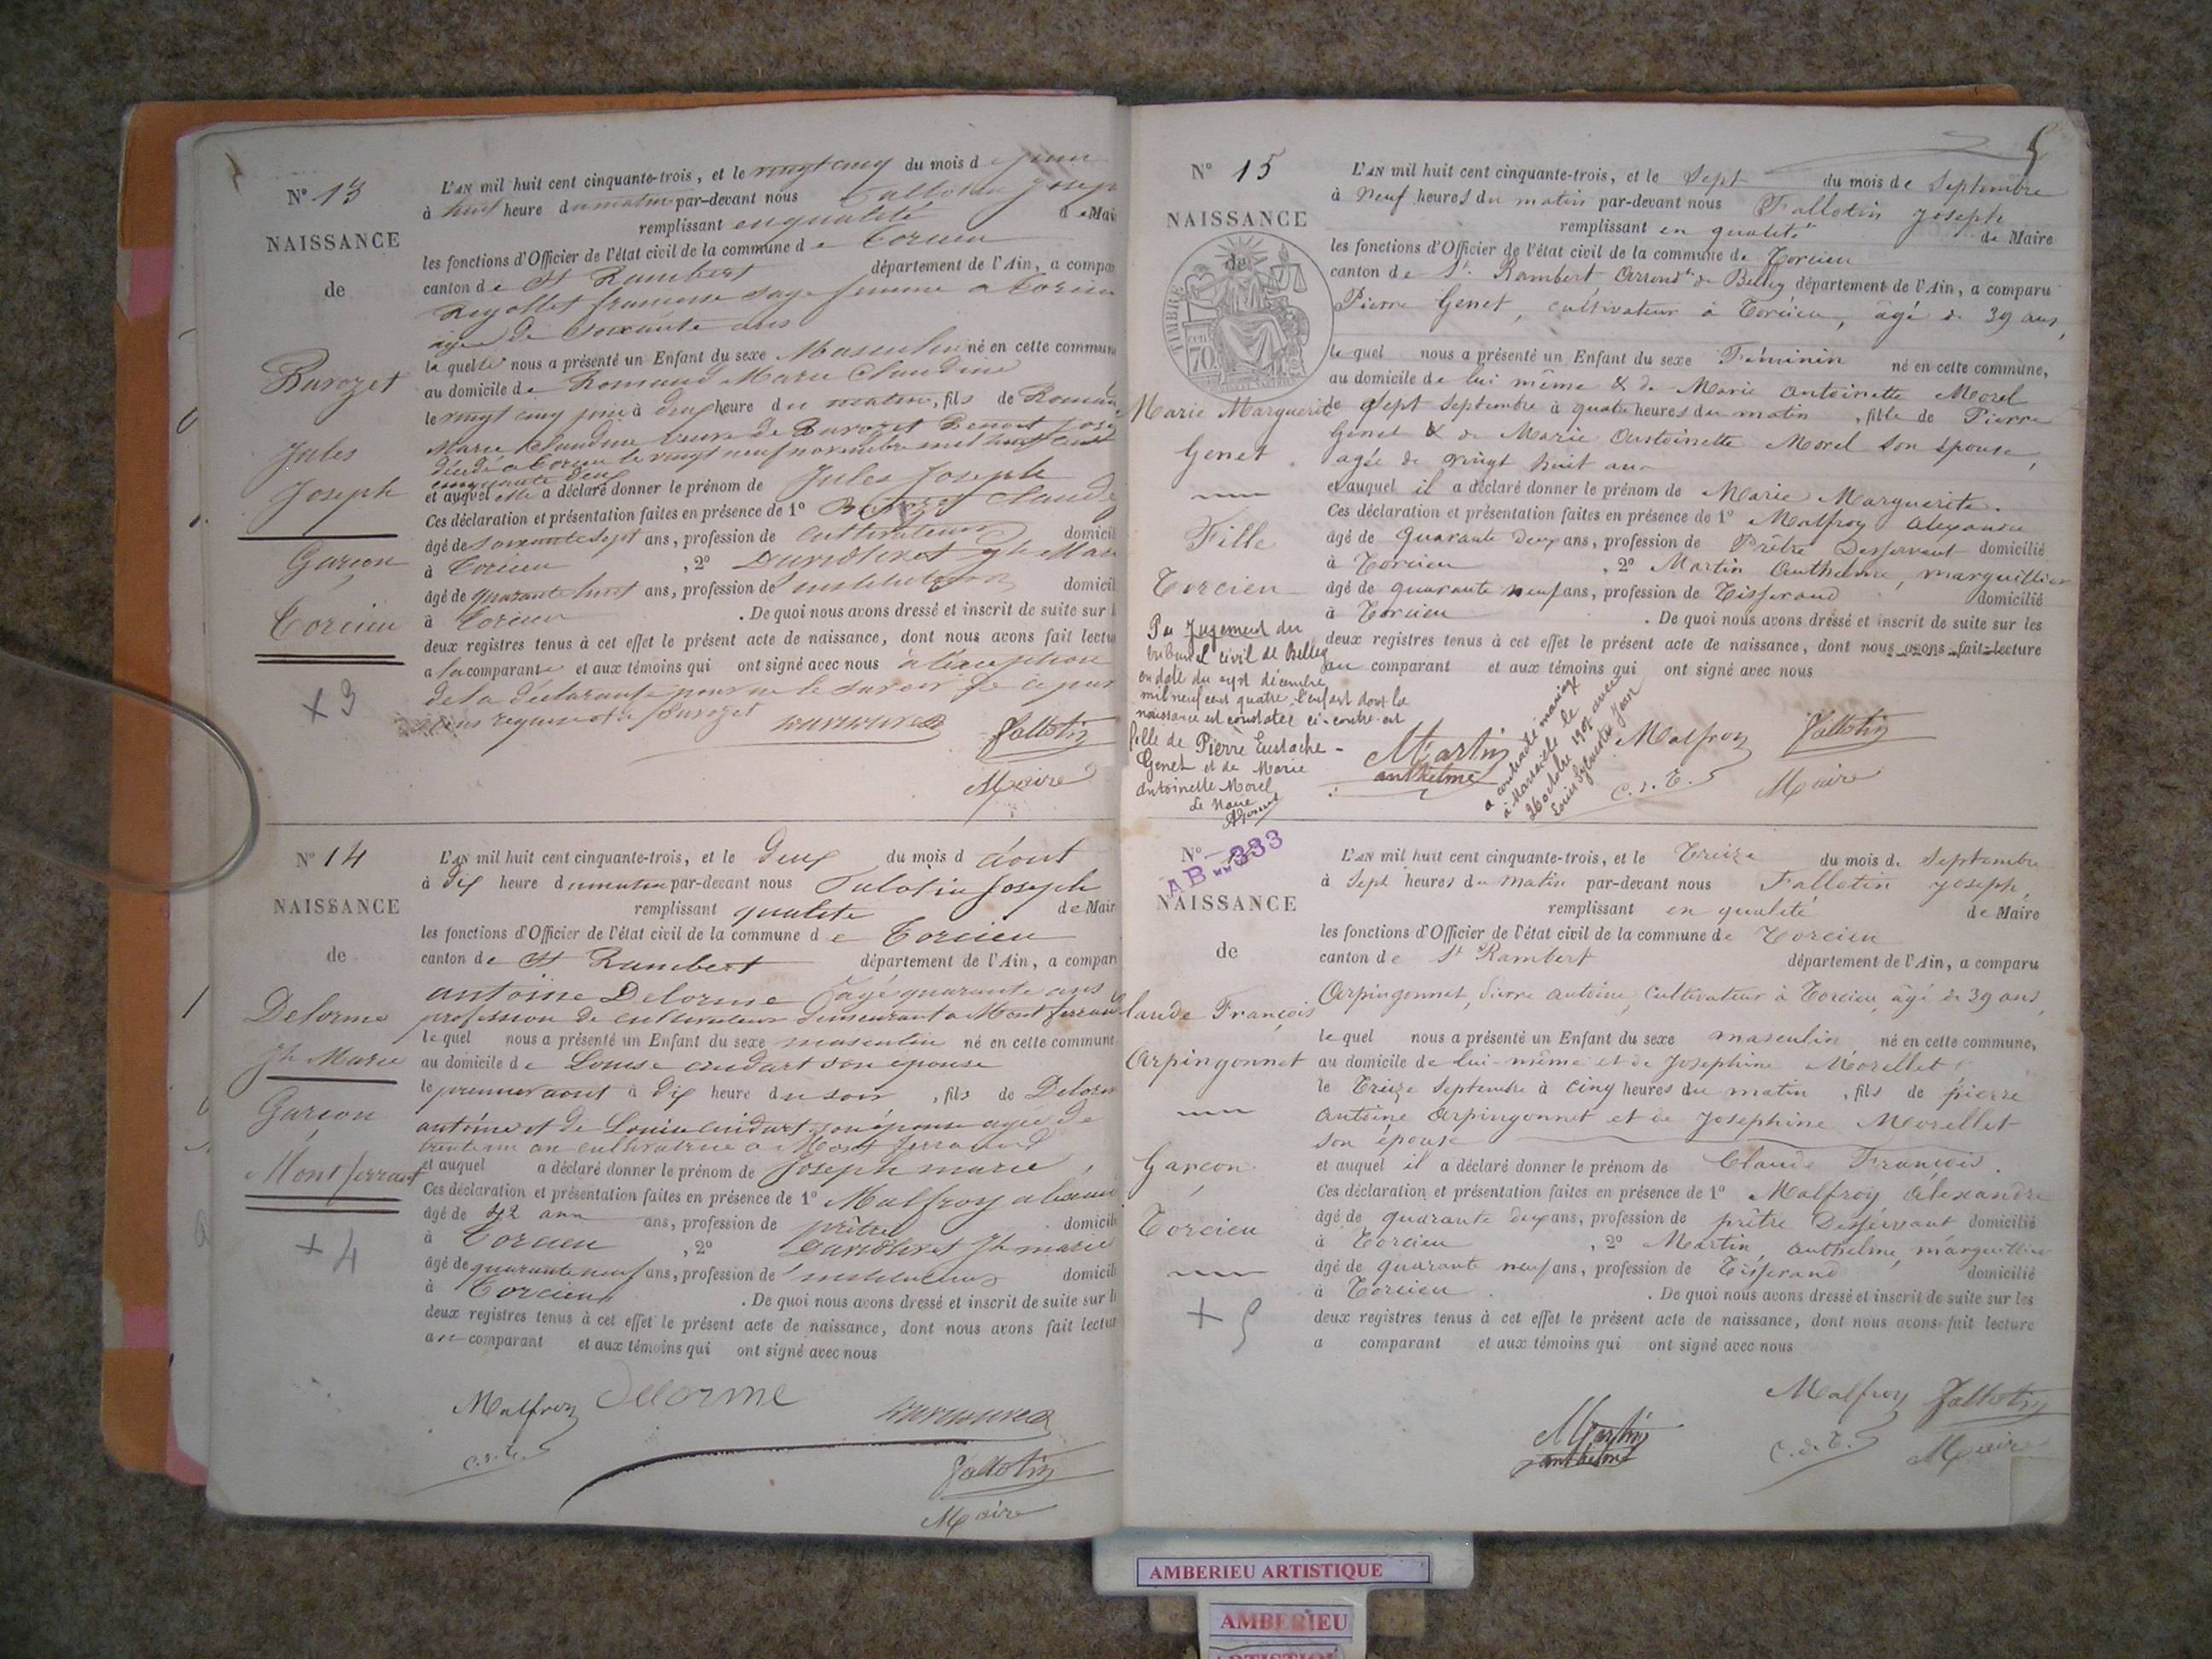 N° 13
NAISSANCE
de
Burozet
Jules
Joseph
Garçon
Torcieu
+3
L'AN mil huit cent cinquante-trois, et le vingt cinq du mois de juin
à huit heure du matin par-devant nous Fallotin Josep
remplissant en qualité de Mai
les fonctions d'Officier de l'état civil de la commune de Torcieu
canton de St Rambert département de l'Ain, a compa
françoise sage femme a Torcieu
agée de soixante ans
la quelle nous a présenté un Enfant du sexe Masculin né en cette commun
au domicile de Romand Marie Claudine
le vingt cinq juin à deux heure du matin, fils de Roman
Marie Claudine veuve de Burozet Benoit Jose
décédé a Torcieu le vingt neuf novembre mil huit cent
cinquante deux
et auquel elle a déclaré donner le prénom de Jules Joseph
Ces déclaration et présentation faites en présence de 1° Burozet Claude
âgé de soixante sept ans, profession de cultivateur domicil
à Torcieu , 2° Mari
âgé de quarante huit ans, profession de instituteur domicil
à Torcieu . De quoi nous avons dressé et inscrit de suite sur l
deux registres tenus à cet effet le présent acte de naissance, dont nous avons fait lectu
a la comparante et aux témoins qui ont signé avec nous à l'exception
de la déclarante pour ne le savoir de ce
requise Burozet Fallotin
Maire
N° 14
NAISSANCE
de
Delorme
Jh Marie
Garçon
Montferrant
+4
L'AN mil huit cent cinquante-trois, et le deux du mois d août
à dix heure du matin par-devant nous Falotin Joseph
remplissant qualité de Mair
les fonctions d'Officier de l'état civil de la commune de Torcieu
canton de St Rambert département de l'Ain, a compar
antoine Delorme agé quarante ans
profession de cultivateur demeurant a Mont ferrand
le quel nous a présenté un Enfant du sexe masculin né en cette commune
au domicile de Louise son épouse
le premier aout à dix heure du soir , fils de Delorm
antoine et de Louise son épouse agée de
trente un an cultivatrice a Mont ferrand
et auquel a déclaré donner le prénom de Joseph marie,
Ces déclaration et présentation faites en présence de 1° Malfroy alexand
âgé de 42 ans ans, profession de prêtre domicili
à Torcieu , 2° Jh marie
âgé de quarante neuf ans, profession de instituteur domicil
à Torcieu . De quoi nous avons dressé et inscrit de suite sur l
deux registres tenus à cet effet le présent acte de naissance, dont nous avons fait lectur
au comparant et aux témoins qui ont signé avec nous
Malfroy Delorme
c.d.T. Fallotin
Maire
5
N° 15
NAISSANCE
de
TIMBRE
70
Marie Marguerite
Genet
Fille
Torcieu
Par Jugement du
tribunal civil de Belley
en date du sept décembre
mil neuf cent quatre, l'enfant dont la
naissance est constatée ci-contre est
fille de Pierre Eustache
Genet et de Marie
Antoinette Morel
Le Maire
L'AN mil huit cent cinquante-trois, et le Sept du mois de Septembre
à Neuf heures du matin par-devant nous Fallotin Joseph
remplissant en qualité de Maire
les fonctions d'Officier de l'état civil de la commune de Torcieu
canton de St Rambert, Arrondt de Belley département de l'Ain, a comparu
Pierre Genet, cultivateur à Torcieu, âgé de 39 ans,
le quel nous a présenté un Enfant du sexe Féminin né en cette commune,
au domicile de lui même & de Marie Antoinette Morel
le Sept Septembre à quatre heures du matin , fille de Pierre
Genet & de Marie Antoinette Morel son épouse,
agée de vingt huit ans
et auquel il a déclaré donner le prénom de Marie Marguerite.
Ces déclaration et présentation faites en présence de 1° Malfroy Alexandre
âgé de quarante deux ans, profession de Prêtre Desservant domicilié
à Torcieu , 2° Martin Anthelme, marguillier
âgé de quarante neuf ans, profession de Tisserand domicilié
à Torcieu . De quoi nous avons dressé et inscrit de suite sur les
deux registres tenus à cet effet le présent acte de naissance, dont nous avons fait lecture
au comparant et aux témoins qui ont signé avec nous
Martin
anthelme
a contracté mariage
à Marseille le
26 octobre 1907 avec
Louis Sylvestre Jean
Malfroy
c.d.T.
Fallotin
Maire
N°
AB 333
NAISSANCE
de
Claude François
Arpingonnet
Garçon
Torcieu
+5
L'AN mil huit cent cinquante-trois, et le Treize du mois de Septembre
à Sept heures du matin par-devant nous Fallotin Joseph,
remplissant en qualité de Maire
les fonctions d'Officier de l'état civil de la commune de Torcieu
canton de St Rambert département de l'Ain, a comparu
Arpingonnet, Pierre Antoine, Cultivateur à Torcieu, âgé de 39 ans,
le quel nous a présenté un Enfant du sexe masculin né en cette commune,
au domicile de lui-même et de Josephine Morellet
le Treize Septembre à cinq heures du matin , fils de pierre
Antoine Arpingonnet et de Josephine Morellet
son épouse
et auquel il a déclaré donner le prénom de Claude François.
Ces déclaration et présentation faites en présence de 1° Malfroy Alexandre
âgé de quarante deux ans, profession de prêtre Desservant domicilié
à Torcieu , 2° Martin, Anthelme, marguillier
âgé de quarante neuf ans, profession de Tisserand domicilié
à Torcieu . De quoi nous avons dressé et inscrit de suite sur les
deux registres tenus à cet effet le présent acte de naissance, dont nous avons fait lecture
a comparant et aux témoins qui ont signé avec nous
Martin
anthelme
Malfroy
c.d.T.
Fallotin
Maire
AMBERIEU ARTISTIQUE
AMBERIEU
ARTISTIQUE